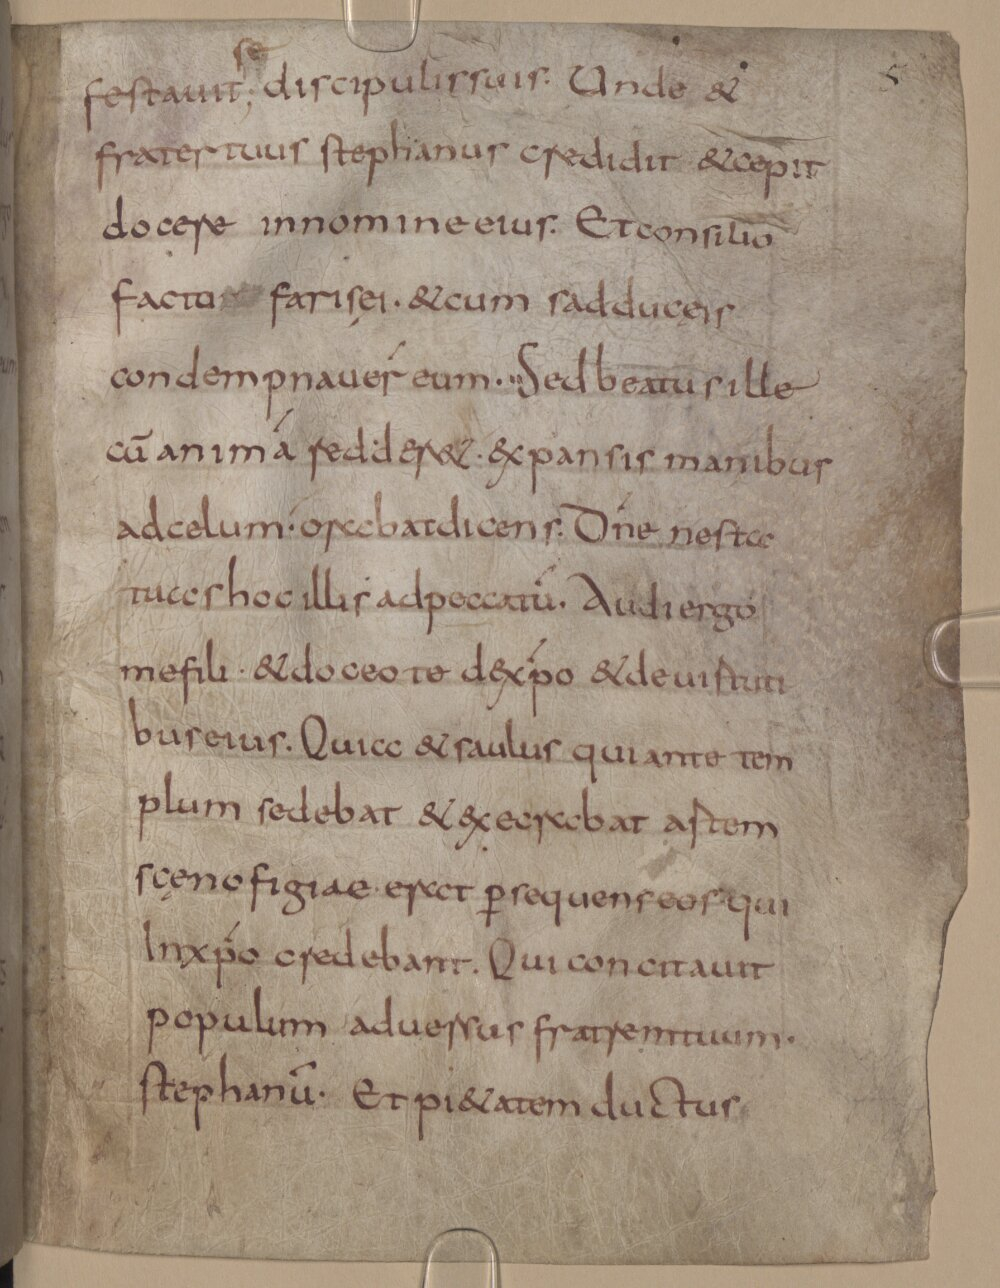 festauit se discipulissuis. Unde &
fratertuus stephanus credidit &cepit
docere innomineeius. Etconsilio
facto farisęi · &cum sadducęis
condempnauer̄ eum. Sedbeatusille
cū animā redder& · expansis manibus
adcelum · orabatdicens. Dn̄e nesta
tuashoc illis adpeccatū. Audiergo
mefili · &doceote dexp̄o &deuirtuti
buseius. Quia &saulus quiante tem
plum sedebat & execrabat artem
scęnofigiae erat ꝑsequenseosqui
Inxp̄o credebant. Qui concitauit
populum aduersus fratremtuum.
stephanū. Et pi&atem ductus
5